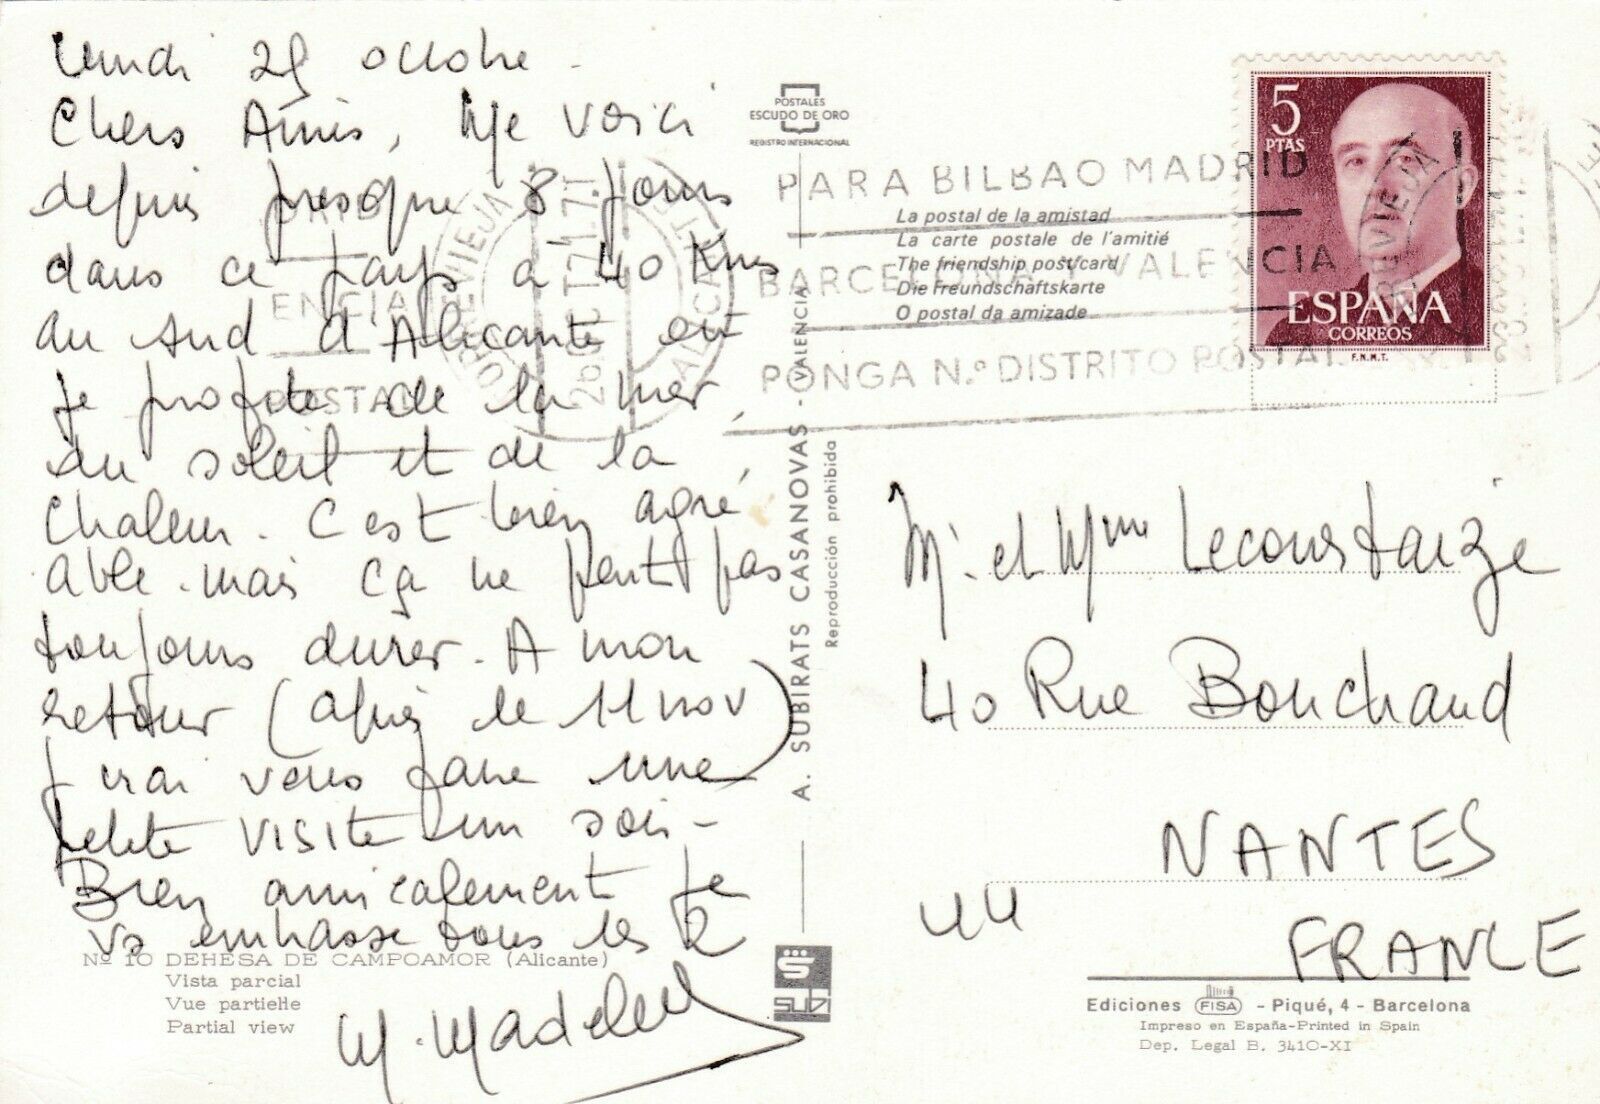 lundi 25 octobre.
Chers Amis, Me voici
depuis presque 8 jours
dans ce pays a 40 Kms
au sud d'Alicante où
je profite de la mer,
du soleil et de la
chaleur. C'est bien agré
able. mais ça ne peut pas
toujours durer. A mon
retour (après le 11 nov)
j'irai vous faire une
petite visite un soir-
Bien amicalement je
vs embrasse tous les 2
M. Madelei
Nº 10 DEHESA DE CAMPOAMOR (Alicante)
Vista parcial
Vue partielle
Partial view
POSTALES
ESCUDO DE ORO
REGISTRO INTERNACIONAL
La postal de la amistad
La carte postale de l'amitié
The friendship post/card
Die Freundschaftskarte
O postal da amizade
A. SUBIRATS CASANOVAS - VALENCIA
Reproducción prohibida
SUBI
PARA BILBAO MADRID
BARCELONA Y VALENCIA
PONGA N.º DISTRITO POSTAL
TORREVIEJA
ALICANTE
26 OCT 71
ENCIA
POSTAL
5
PTAS
ESPAÑA
CORREOS
F.N.M.T.
Mr et Mme Leconstarze
40 Rue Bouchaud
NANTES
44
FRANCE
Ediciones FISA - Piqué, 4 - Barcelona
Impreso en España-Printed in Spain
Dep. Legal B. 3410-XI